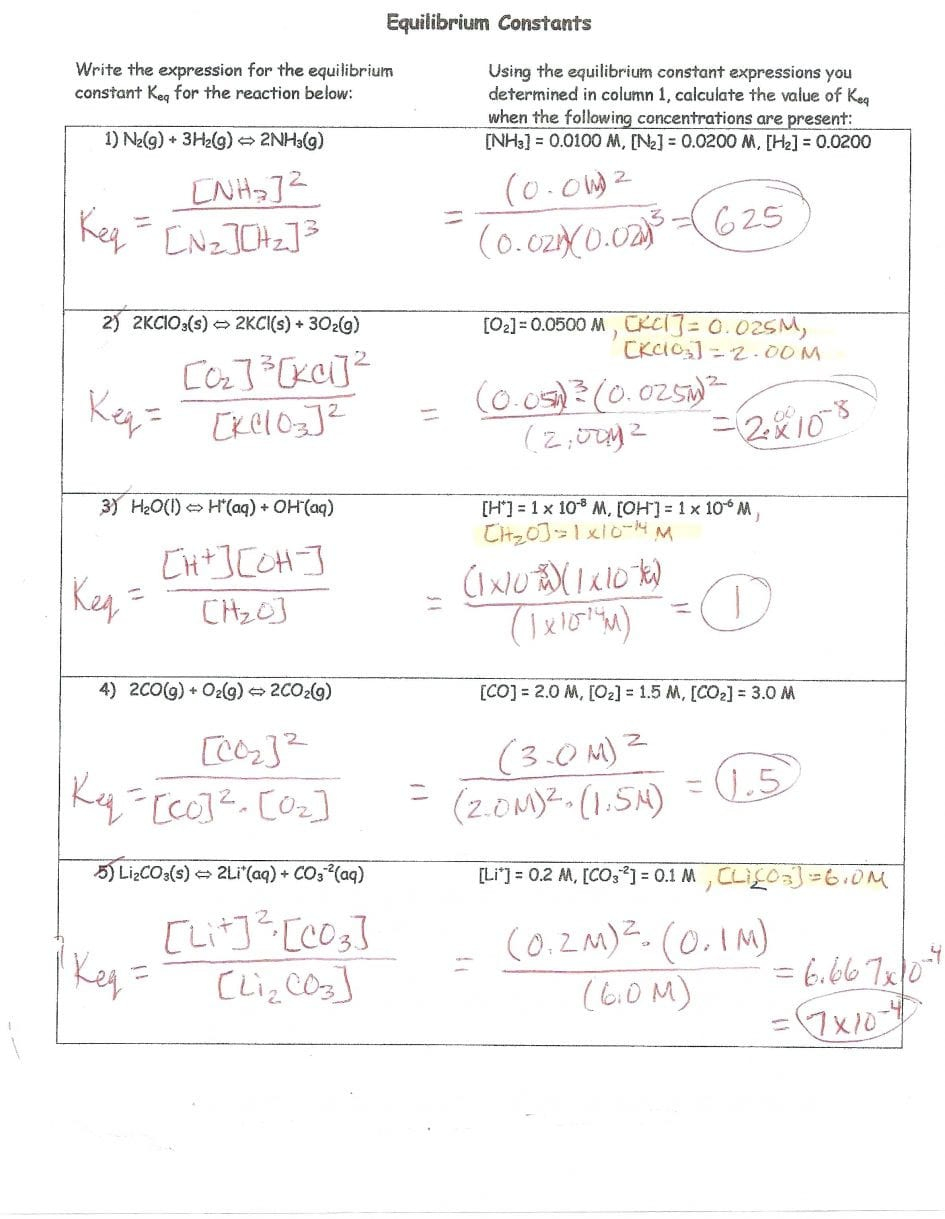 Equilibrium Constants
Write the expression for the equilibrium
constant Keq for the reaction below:
Using the equilibrium constant expressions you
determined in column 1, calculate the value of Keq
when the following concentrations are present:
1) N₂(g) + 3H₂(g) ⇔ 2NH₃(g)
[NH₃] = 0.0100 M, [N₂] = 0.0200 M, [H₂] = 0.0200
Keq = [NH₃]² / [N₂][H₂]³
= (0.01M)² / (0.02M)(0.02M)³ = 625
2) 2KClO₃(s) ⇔ 2KCl(s) + 3O₂(g)
[O₂] = 0.0500 M, [KCl] = 0.025M,
[KClO₃] = 2.00 M
Keq = [O₂]³[KCl]² / [KClO₃]²
= (0.05M)³ (0.025M)² / (2.00M)² = 2.00x10⁻⁸
3) H₂O(l) ⇔ H⁺(aq) + OH⁻(aq)
[H⁺] = 1 x 10⁻⁸ M, [OH⁻] = 1 x 10⁻⁶ M,
[H₂O] = 1x10⁻¹⁴ M
Keq = [H⁺][OH⁻] / [H₂O]
= (1x10⁻⁸M)(1x10⁻⁶M) / (1x10⁻¹⁴M) = 1
4) 2CO(g) + O₂(g) ⇔ 2CO₂(g)
[CO] = 2.0 M, [O₂] = 1.5 M, [CO₂] = 3.0 M
Keq = [CO₂]² / [CO]² · [O₂]
= (3.0 M)² / (2.0M)² · (1.5M) = 1.5
5) Li₂CO₃(s) ⇔ 2Li⁺(aq) + CO₃⁻²(aq)
[Li⁺] = 0.2 M, [CO₃⁻²] = 0.1 M, [Li₂CO₃] = 6.0M
Keq = [Li⁺]² · [CO₃] / [Li₂CO₃]
= (0.2M)² · (0.1M) / (6.0M) = 6.667x10⁻⁴
= 7x10⁻⁴